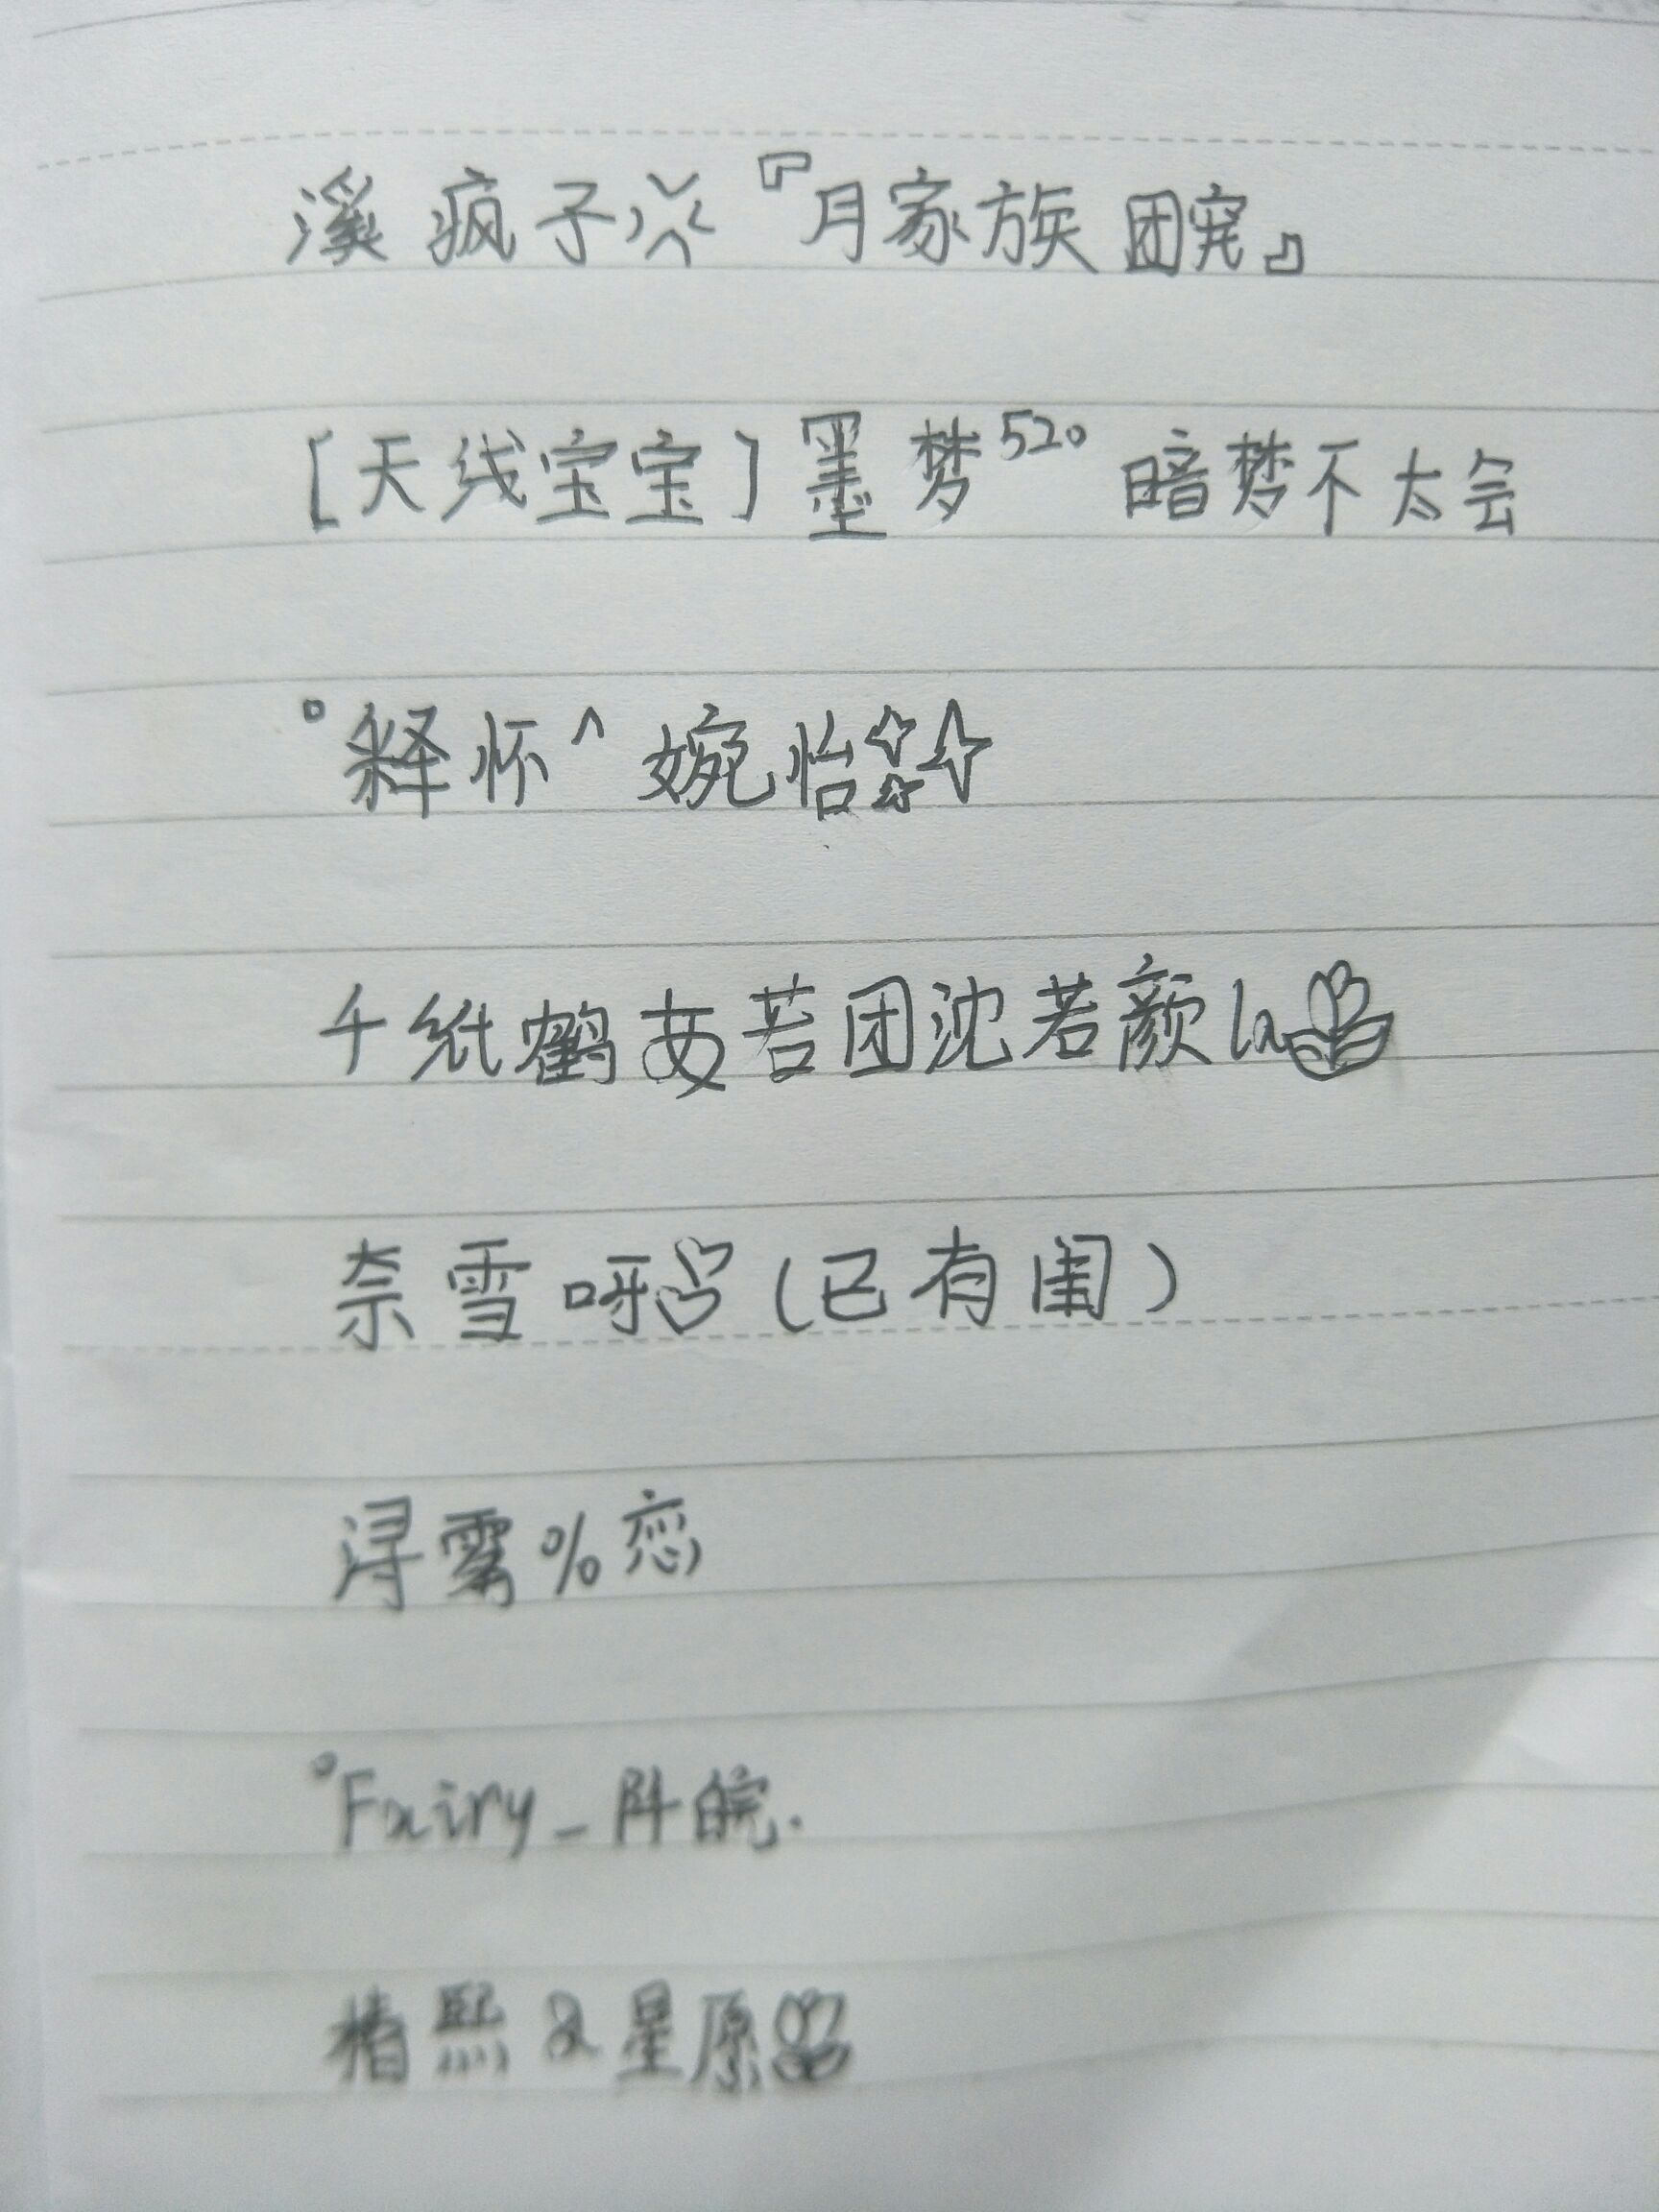 溪疯子💢『月家族团宠』
[天线宝宝]墨梦520 暗梦不太会
°释怀^婉怡✨
千纸鹤 若团沈若颜la
奈雪呀(已有闺)
浔霭%恋
°Fairy_阡皖.
椿熙&星原